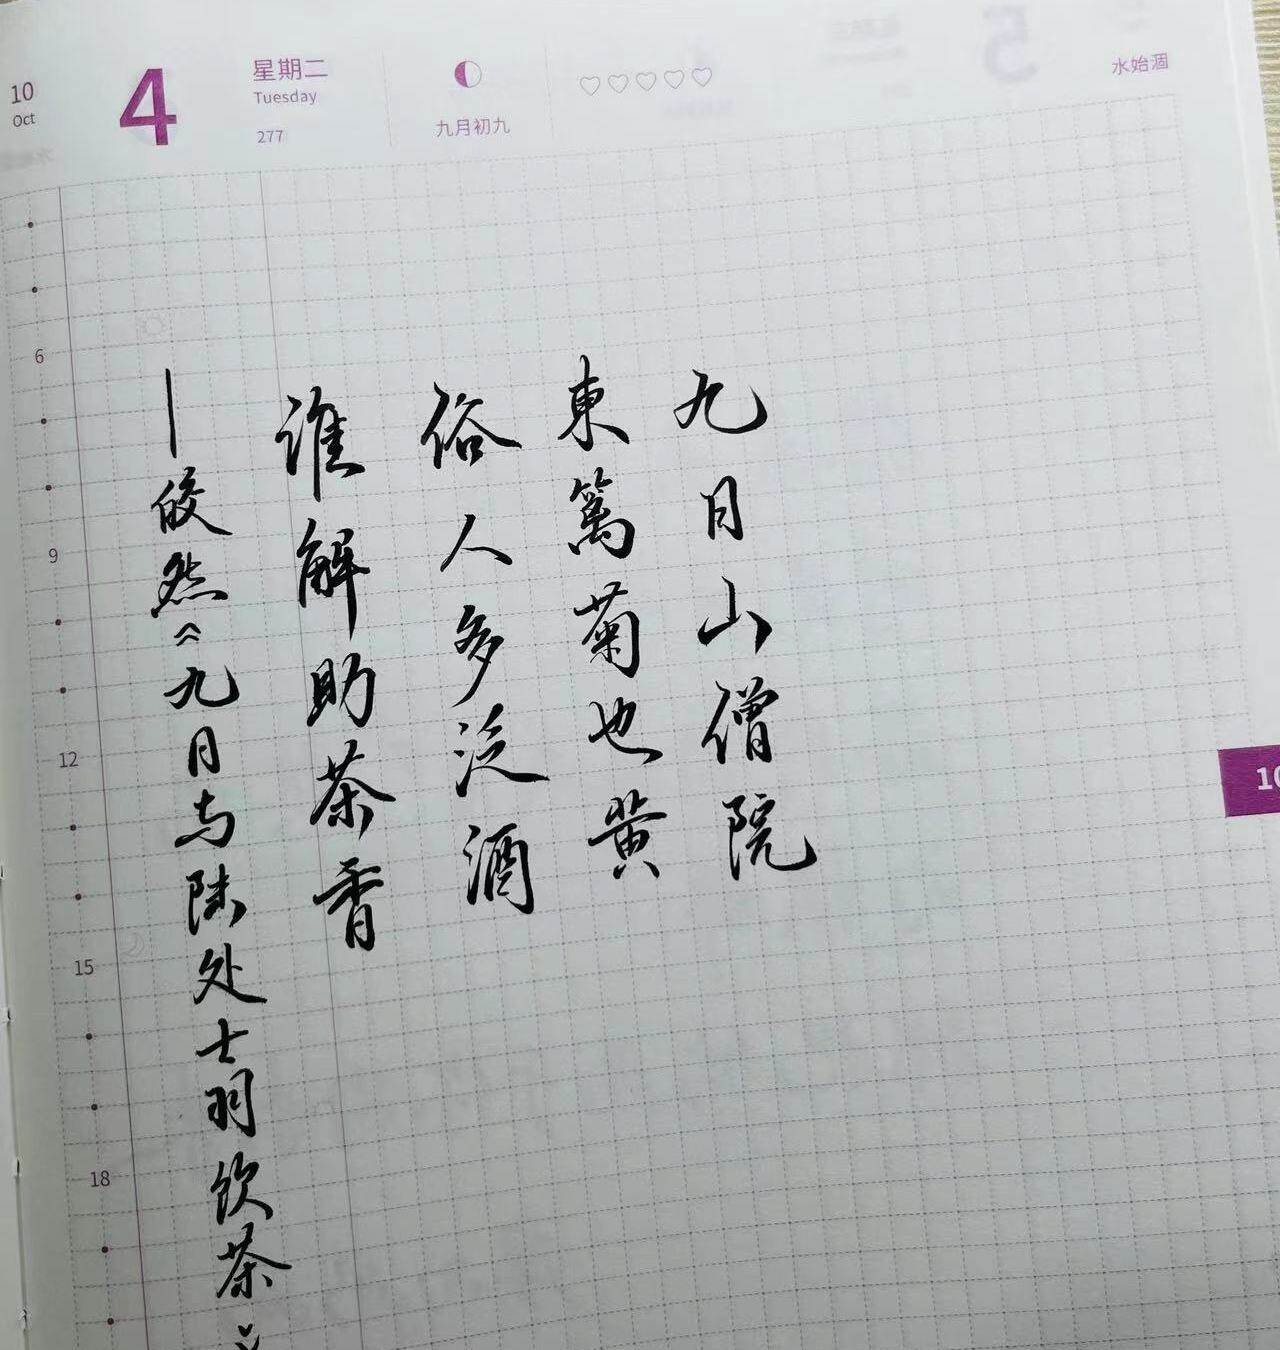 10
Oct
4
星期二
Tuesday
277
九月初九
水始涸
6
9
12
15
18
10
九月山僧院
東篱菊也黄
俗人多泛酒
谁解助茶香
—皎然《九月与陆处士羽饮茶》